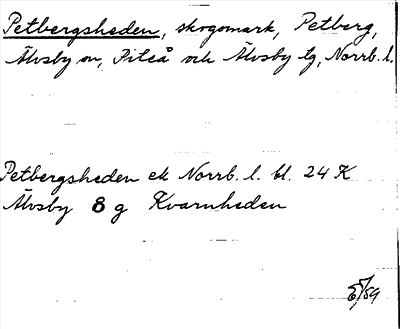 Petbergsheden, skogsmark, Petberg,
Älvsby sn, Piteå och Älvsby tg, Norrb. l.
Petbergsheden ek Norrb. l. bl. 24 K
Älvsby 8 g Kvarnheden
/59